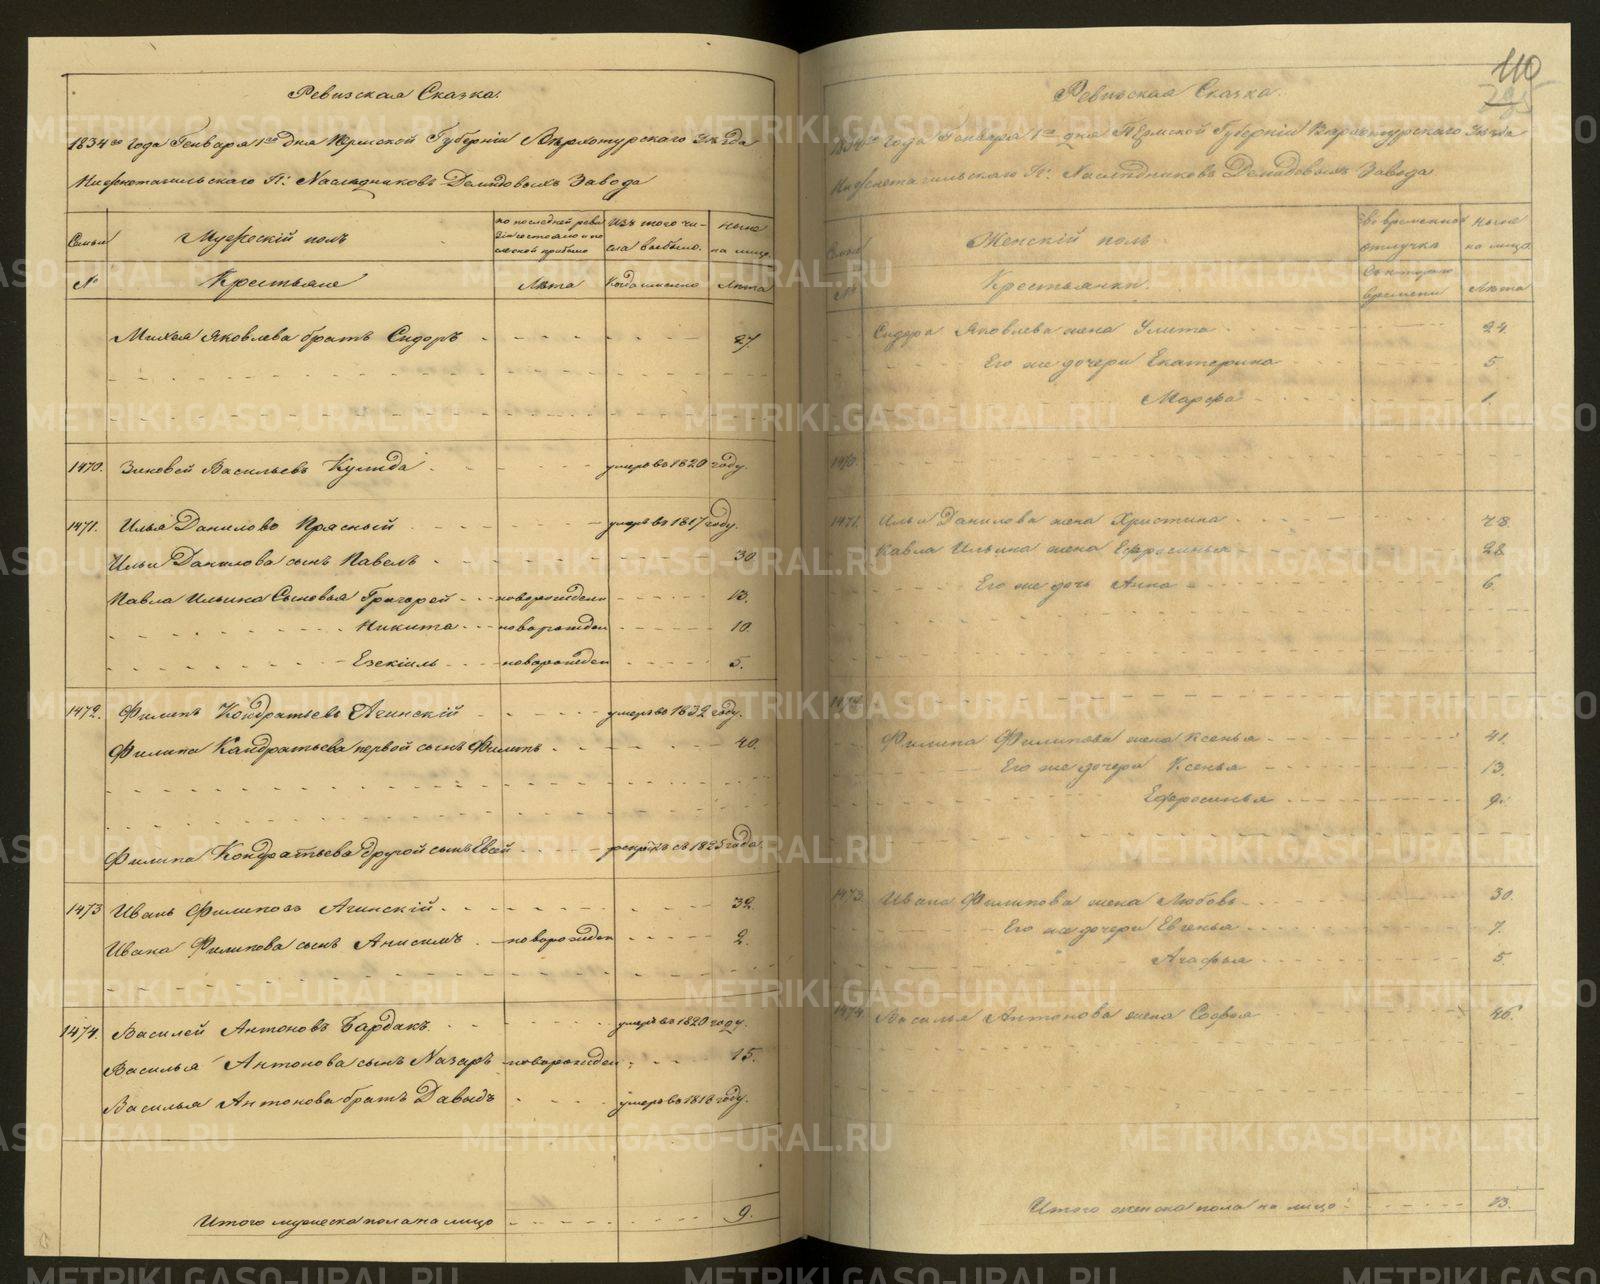 Ревизская Сказка.
1834го года Генваря 1го дня Пермской Губернiи Верхотурскаго Уезда
Нижнетагильскаго Гг: Наследниковъ Демидовыхъ Завода
Семьи
Мужескiй полъ
по последней ревизiи состояло и после оной прибыло
Изъ того числа выбыло.
ныне на лицо
№
Крестьяне
Лета
Когда именно
Лета
Яковлева братъ Сидоръ 27.
1470. Зиновей Васильевъ умеръ въ 1820 году.
1471. Илья Даниловъ Красный умеръ въ 1817 году.
Ильи Данилова сынъ Павелъ 30
Павла Ильина Сыновья Григорей новорожден 13.
Никита новорожден 10.
Езекiиль новорожден 5.
1472. Филипъ Кондратьевъ Ачинскiй умеръ въ 1832 году.
Филипа Кандратьева первой сынъ Филипъ 40.
Филипа Кондратьева другой сынъ Евсей съ 1825 года.
1473 Иванъ Филиповъ Ачинскiй 32.
Ивана Филипова сынъ Анисимъ новорожден 2.
1474. Василей Антоновъ Бардакъ. умеръ въ 1820 году.
Василья Антонова сынъ Назаръ новорожден 15.
Василья Антонова братъ Давыдъ умеръ въ 1818 году.
Итого мужеска пола на лицо 9.
110
Ревизская Сказка.
1834го года Генваря 1го дня Пермской Губернiи Верхотурскаго Уезда
Нижнетагильскаго Гг: Наследниковъ Демидовыхъ Завода
Семьи
Женскiй полъ
во временной отлучке
ныне на лицо
№
Крестьянки
Съ котораго времени
Лета
Сидора Яковлева жена Улита 24.
Его же дочери Екатерина 5
Марфа 1.
1470.
1471. Ильи Данилова жена Христина 48.
Павла Ильина жена Ефросинья 28
Его же дочь Анна 6.
1472.
Филипа Филипова жена Ксенья 41.
Его же дочери Ксенья 13.
Ефросинья 9.
1473. Ивана Филипова жена Любовь 30.
Его же дочери Евгенья 7.
Агафья 5.
1474. Василья Антонова жена Софья 46.
Итого женска пола на лицо: 13.
METRIKI.GASO-URAL.RU